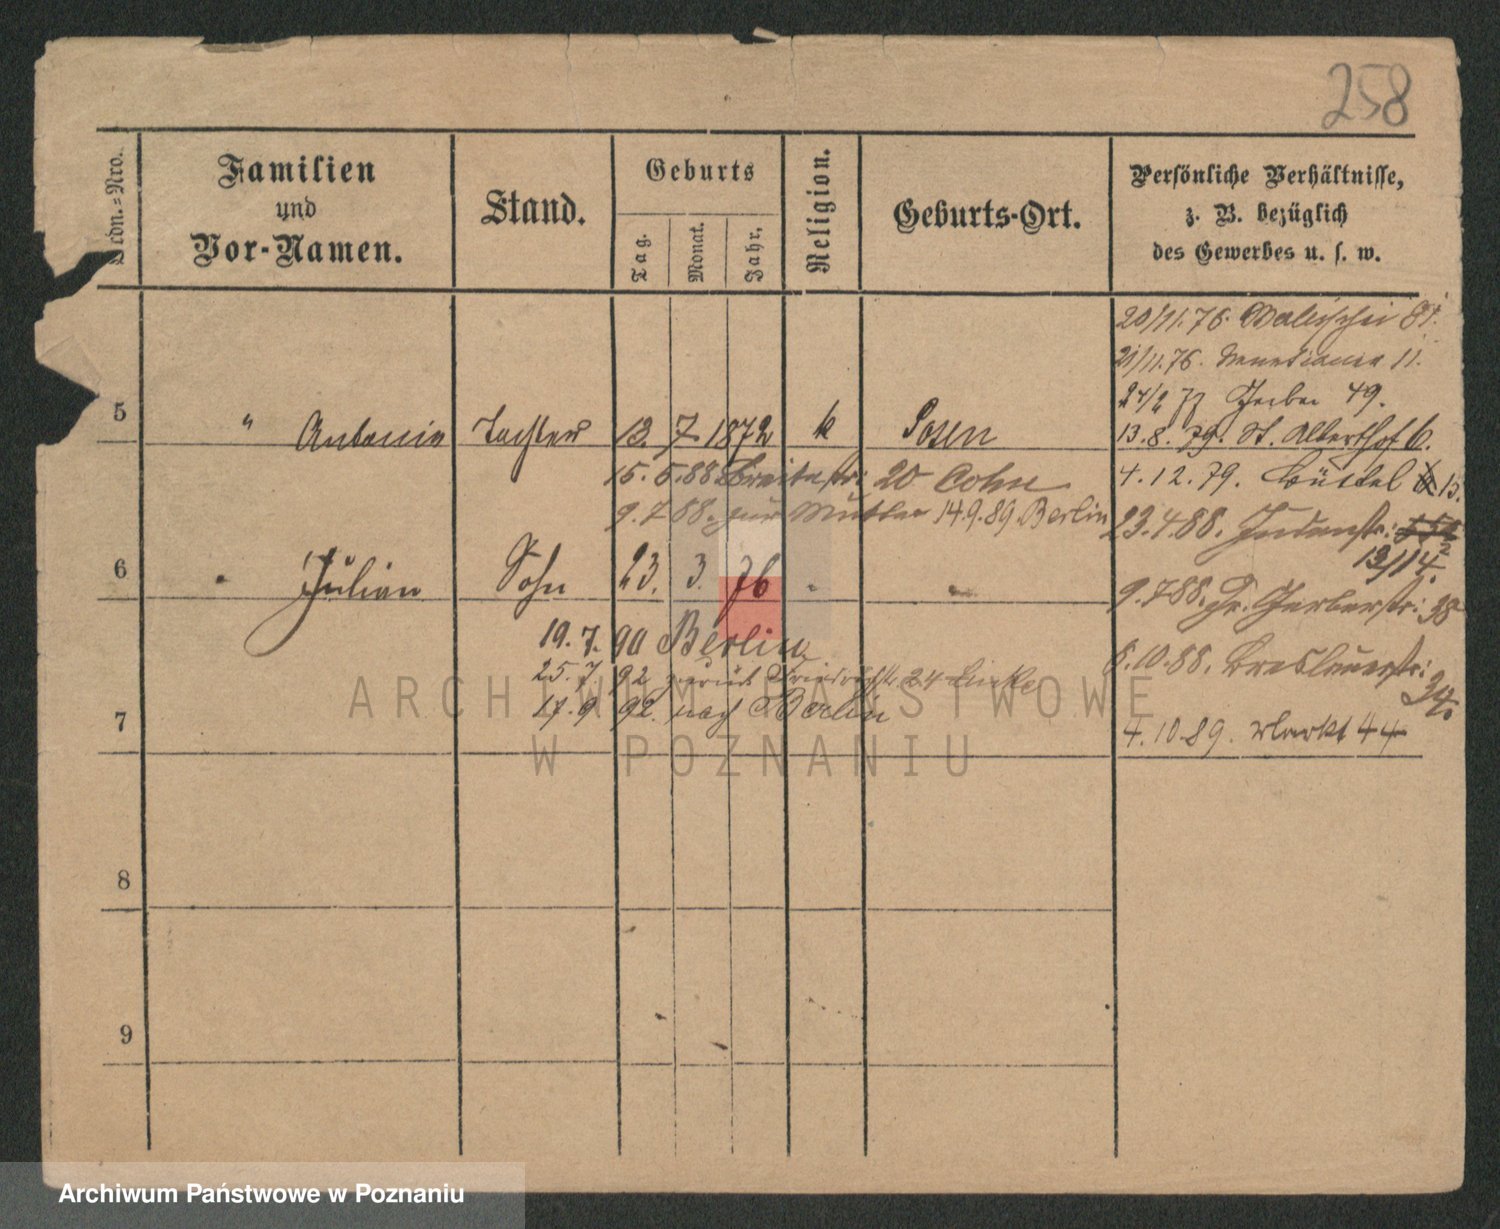 258
Ordn.=Nro.
Familien
und
Vor-Namen.
Stand.
Geburts
Tag.
Monat.
Jahr.
Religion.
Geburts-Ort.
Persönliche Verhältnisse,
z. B. bezüglich
des Gewerbes u. s. w.
20/11.76. Wallischei
21/11.76. Venetianer 11.
Gerber 49.
5 " Antonie Tochter 13. 7. 1872 k Posen
13.8.79. St. Alberthof 6.
15.5.88 Breitestr: 20 Cohn
4.12.79. Büttel 15.
9.7.88. zur Mutter 14.9.89. Berlin
23.4.88. Judenstr:
13/14.
6 " Julian Sohn 23. 3. 76 "
9.7.88. Gr. Gerberstr: 38
19.7.90 Berlin
8.10.88. Breslauerstr:
25.7.92 zurück Friedrichstr. 24 Linke
17.9.92. nach Berlin
7
4.10.89. Markt 44
8
9
ARCHIWUM PAŃSTWOWE
W POZNANIU
Archiwum Państwowe w Poznaniu